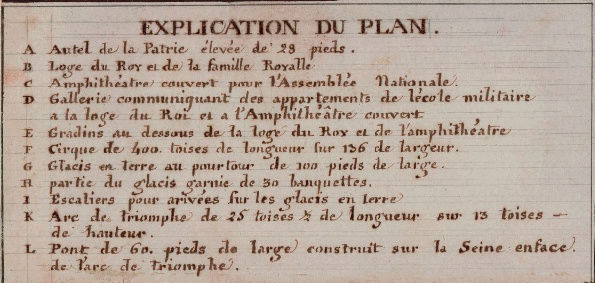 EXPLICATION DU PLAN.
A Autel de la Patrie élevée de 28 pieds.
B Loge du Roy et de la famille Royalle
C Amphithéatre couvert pour l'Assemblée Nationale.
D Gallerie communiquant des appartements de lécole militaire
a la loge du Roi et a l'Amphithéâtre couvert
E Gradins au dessous de la loge du Roy et de l'amphithéatre
F Cirque de 400. toises de longueur sur 136 de largeur.
G Glacis en terre au pourtour de 100 pieds de large.
H partie du glacis garnie de 30 banquettes.
I Escaliers pour arivées sur les glacis en terre
K Arc de triomphe de 25 toises ½ de longueur sur 13 toises —
de hauteur.
L Pont de 60. pieds de large construit sur la Seine enface.
de l'arc de triomphe.